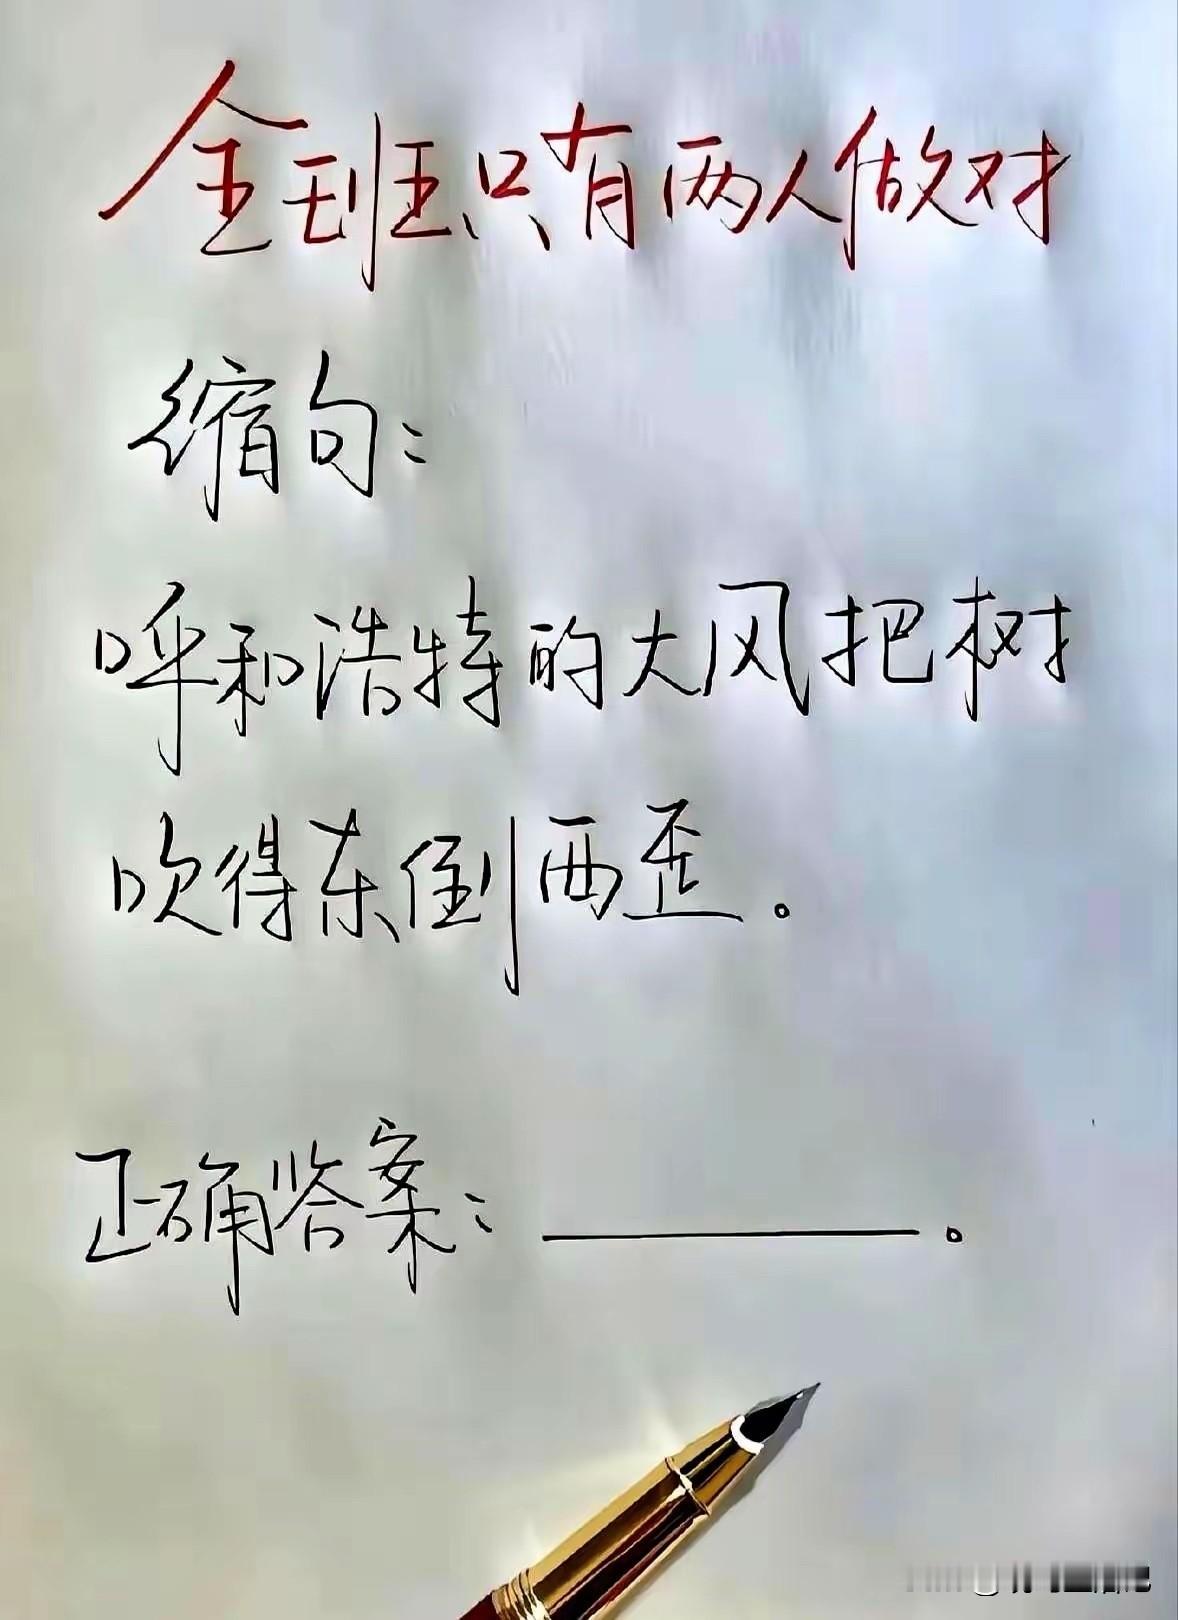 全班只有两人做对
缩句:
呼和浩特的大风把树
吹得东倒西歪。
正确答案:______。